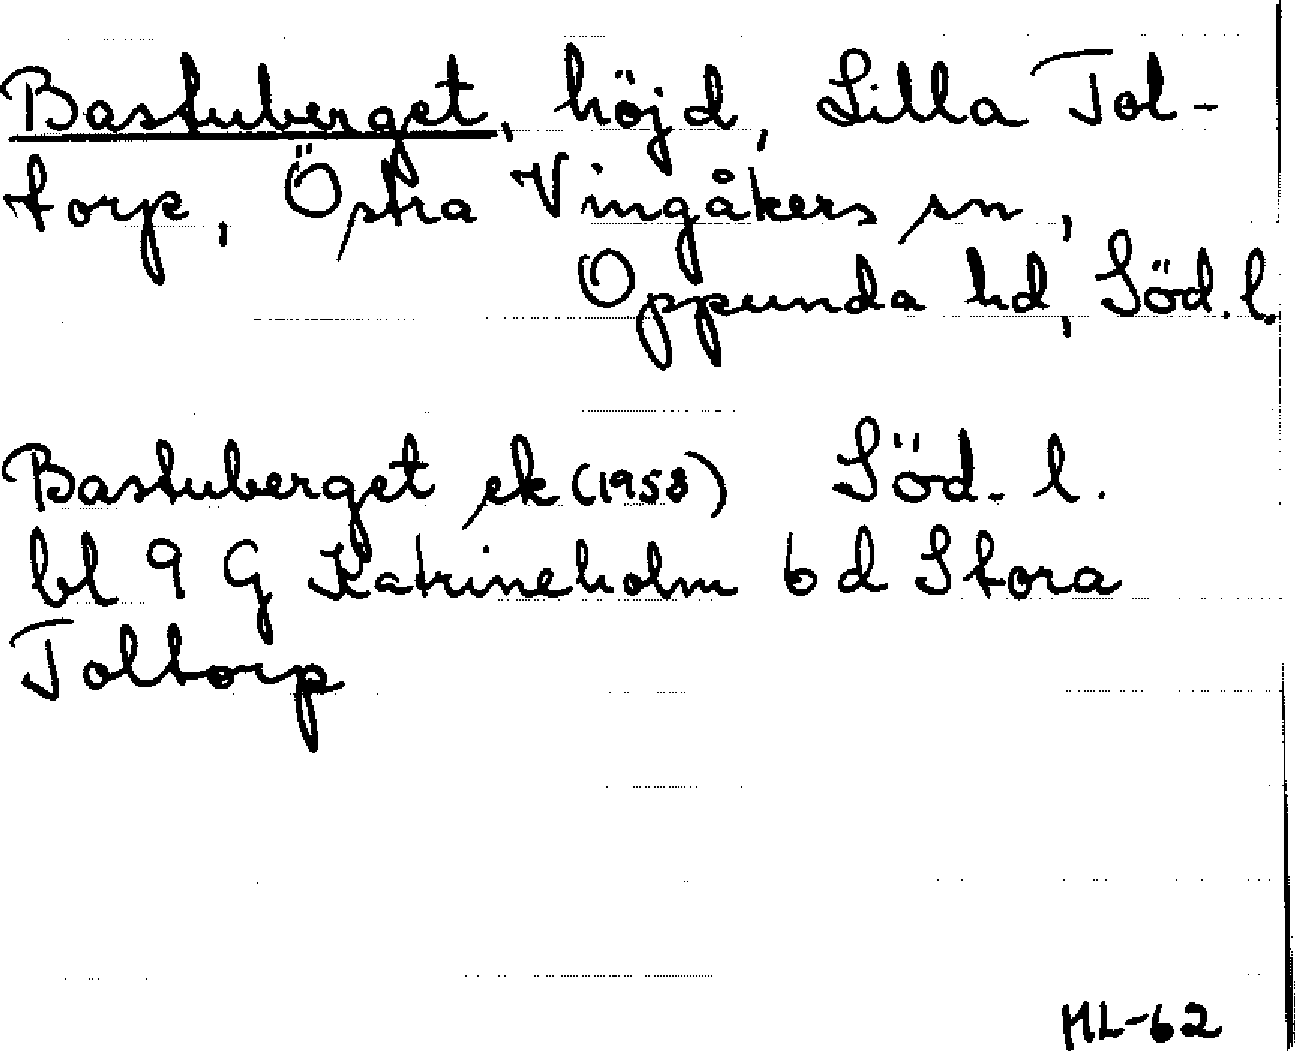 Bastuberget, höjd, Lilla Tol-
torp, Östra Vingåkers sn,
Oppunda hd, Söd. l.
Bastuberget ek (1958) Söd. l.
bl 9 G Katrineholm 6 d Stora
Toltorp
ML-62